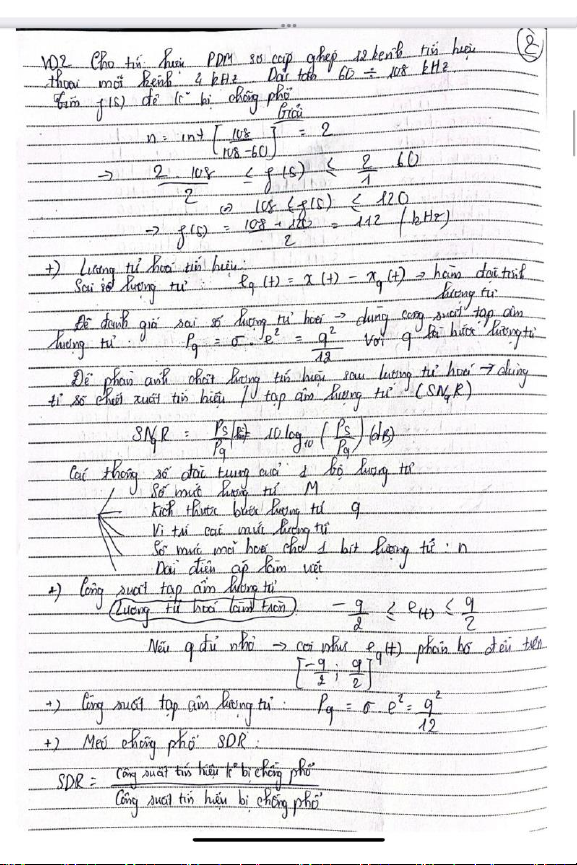 ②
VD2 Cho tín hiệu PDM sơ cấp ghép 12 kênh tín hiệu
thoại mỗi kênh 4 kHz. Dải tần 60 ÷ 108 kHz.
Tìm f(s) để k° bị chồng phổ
Giải
n = int [108 / (108-60)] = 2
→ 2.108/2 ≤ f(s) ≤ 2/1 60
⇔ 108 ≤ f(s) ≤ 120
→ f(s) = (108 + 120)/2 = 112 (kHz)
+) Lượng tử hoá tín hiệu:
Sai số lượng tử : eq(t) = x(t) - xq(t) → hàm đặc trình
lượng tử
Để đánh giá sai số lượng tử hoá → dùng công suất tạp âm
lượng tử : Pq = σ e² = q²/12 với q là bước lượng tử
Để phản ánh chất lượng tín hiệu sau lượng tử hoá → dùng
tỉ số chất xuất tín hiệu / tạp âm lượng tử (SNqR)
SNqR = Ps/Pq = 10 log10 (Ps/Pq) (dB)
Các thông số đặc trưng của 1 bộ lượng tử
Số mức lượng tử M
Kích thước bước lượng tử q
Vị trí các mức lượng tử
Số mức mã hoá cho 1 bit lượng tử : n
Dải điện áp làm việc
+) Công suất tạp âm lượng tử
(Lượng tử hoá làm tròn) -q/2 ≤ e(t) ≤ q/2
Nếu q đủ nhỏ → coi như eq(t) phân bố đều trên
[-q/2 ; q/2]
+) Công suất tạp âm lượng tử : Pq = σ e² = q²/12
+) Méo chồng phổ SDR :
SDR = Công suất tín hiệu k° bị chồng phổ
Công suất tín hiệu bị chồng phổ